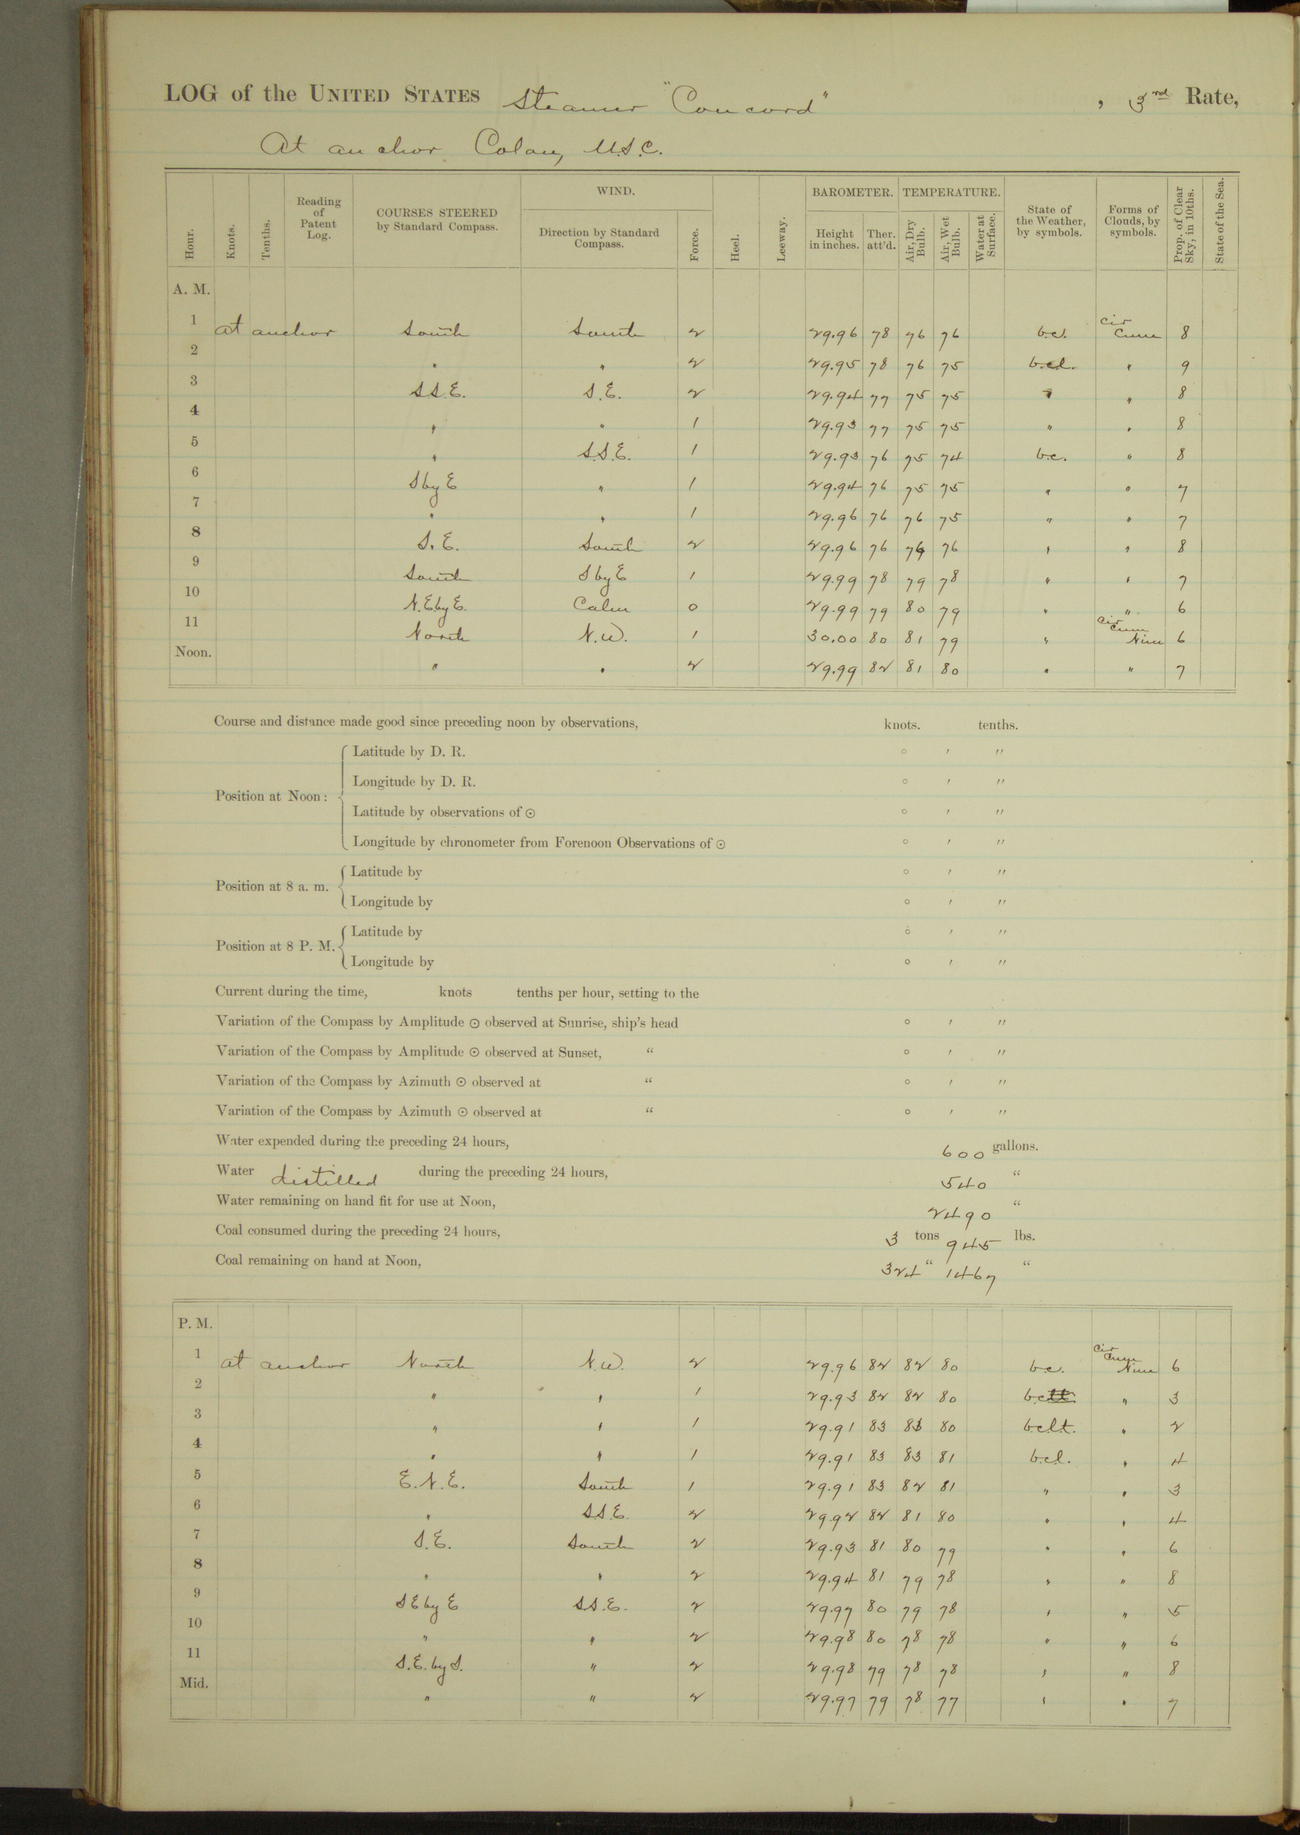 LOG of the UNITED STATES Steamer "Concord" , 3rd Rate,
At anchor Colon, U.S.C.
Hour. Knots. Tenths. Reading of Patent Log. COURSES STEERED by Standard Compass. WIND. Direction by Standard Compass. Force. Heel. Leeway. BAROMETER. Height in inches. Ther. att'd. TEMPERATURE. Air, Dry Bulb. Air, Wet Bulb. Water at Surface. State of the Weather, by symbols. Forms of Clouds, by symbols. Prop. of Clear Sky, in 10ths. State of the Sea.
A. M.
1 at anchor South South 2 29.96 78 76 76 b.c. Cir Cum 8
2 " " 2 29.95 78 76 75 b.c.l. " 9
3 S.S.E. S.E. 2 29.94 77 75 75 " " 8
4 " " 1 29.93 77 75 75 " " 8
5 " S.S.E. 1 29.93 76 75 74 b.c. " 8
6 S by E " 1 29.94 76 75 75 " " 7
7 " " 1 29.96 76 76 75 " " 7
8 S.E. South 2 29.96 76 76 76 " " 8
9 South S by E 1 29.99 78 79 78 " " 7
10 N.E by E. Calm 0 29.99 79 80 79 " " 6
11 North N.W. 1 30.00 80 81 79 " Cir Cum Nim 6
Noon. " " 2 29.99 82 81 80 " " 7
Course and distance made good since preceding noon by observations, knots. tenths.
Position at Noon: Latitude by D. R. ° ′ ″
Longitude by D. R. ° ′ ″
Latitude by observations of ☉ ° ′ ″
Longitude by chronometer from Forenoon Observations of ☉ ° ′ ″
Position at 8 a. m. Latitude by ° ′ ″
Longitude by ° ′ ″
Position at 8 P. M. Latitude by ° ′ ″
Longitude by ° ′ ″
Current during the time, knots tenths per hour, setting to the
Variation of the Compass by Amplitude ☉ observed at Sunrise, ship's head ° ′ ″
Variation of the Compass by Amplitude ☉ observed at Sunset, " ° ′ ″
Variation of the Compass by Azimuth ☉ observed at " ° ′ ″
Variation of the Compass by Azimuth ☉ observed at " ° ′ ″
Water expended during the preceding 24 hours, 600 gallons.
Water distilled during the preceding 24 hours, 540 "
Water remaining on hand fit for use at Noon, 2490 "
Coal consumed during the preceding 24 hours, 3 tons 945 lbs.
Coal remaining on hand at Noon, 324 " 1467 "
P. M.
1 at anchor North N.W. 2 29.96 82 82 80 b.c. Cir Cum Nim 6
2 " " 1 29.93 82 82 80 bc " 3
3 " " 1 29.91 83 83 80 b.c.l.t. " 2
4 " " 1 29.91 83 83 81 b.c.l. " 4
5 E.N.E. South 1 29.91 83 82 81 " " 3
6 " S.S.E. 2 29.92 82 81 80 " " 4
7 S.E. South 2 29.93 81 80 79 " " 6
8 " " 2 29.94 81 79 78 " " 8
9 S E by E S.S.E. 2 29.97 80 79 78 " " 5
10 " " 2 29.98 80 78 78 " " 6
11 S.E. by S. " 2 29.98 79 78 78 " " 8
Mid. " " 2 29.97 79 78 77 " " 7